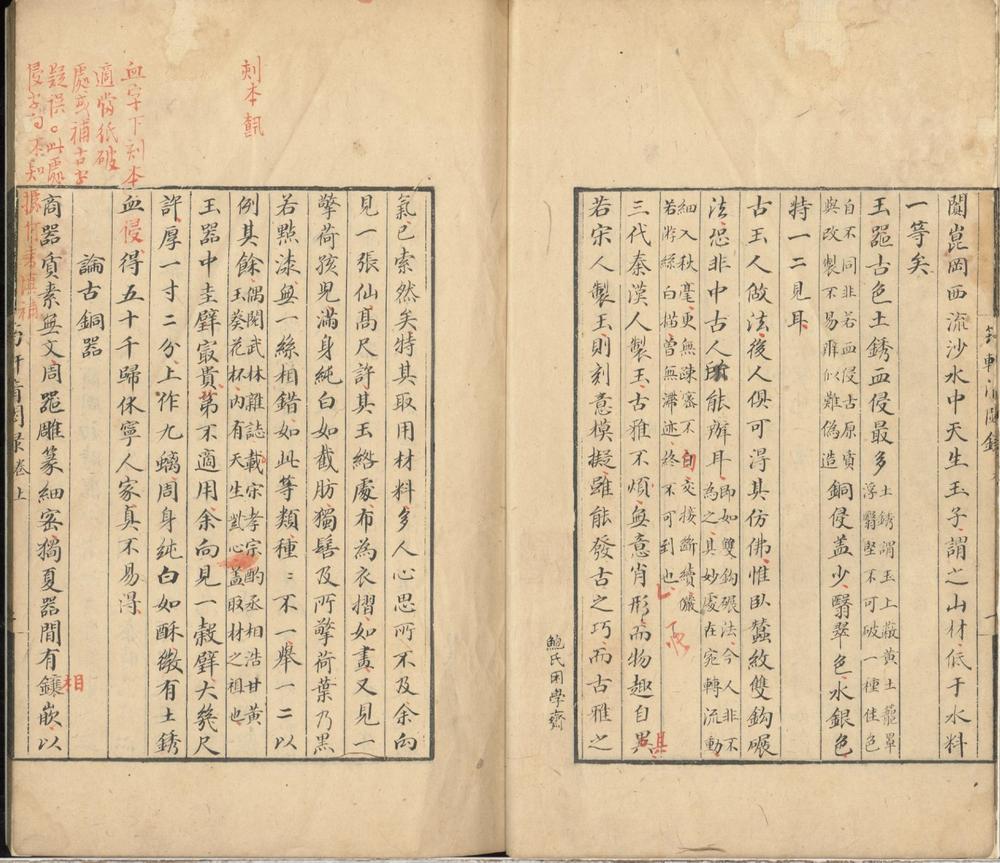 闐崑岡西流沙水中天生玉子謂之山材低于水料
一等矣
玉噐古色土銹血侵最多土銹謂玉上蔽黃土籠罩浮翳堅不可破一種佳色
自不同非若血侵古原質與改製不易辨似難偽造銅侵盖少翳翠色水銀色
特一二見耳
古玉人做法後人俱可得其仿佛惟臥蠶紋雙鈎碾
法恐非中古人所能辦耳即如雙鈎碾法今人非不為之其妙處在宛轉流動
細入秋毫更無疎密不勻交接斷續儼若游絲白描曾無滯迹終不可到也
三代秦漢人製玉古雅不煩無意肖形而物趣自異
若宋人製玉則刻意模擬雖能發古之巧而古雅之
其
鮑氏困學齋
氣已索然矣特其取用材料多人心思所不及余向
見一張仙髙尺許其玉綹處布為衣摺如畫又見一
擎荷孩児滿身純白如截肪獨髻及所擎荷葉乃黑
若點漆無一絲相錯如此等類種〻不一舉一二以
例其餘偶閱武林雜誌載宋孝宗酌丞相浩甘黃玉葵花杯內有天生甆心盖取材之祖也
玉器中圭璧㝡貴第不適用余向見一榖璧大幾尺
許厚一寸二分上作九螭周身純白如酥緻有土銹
血侵得五十千歸休寧人家真不易得
論古銅器
商器質素無文周噐雕篆細密獨夏器間有鑲嵌以
相
卷上
刻本翫
血字下刻本
適當紙破
處或補古字
疑誤此處
侵字白不知